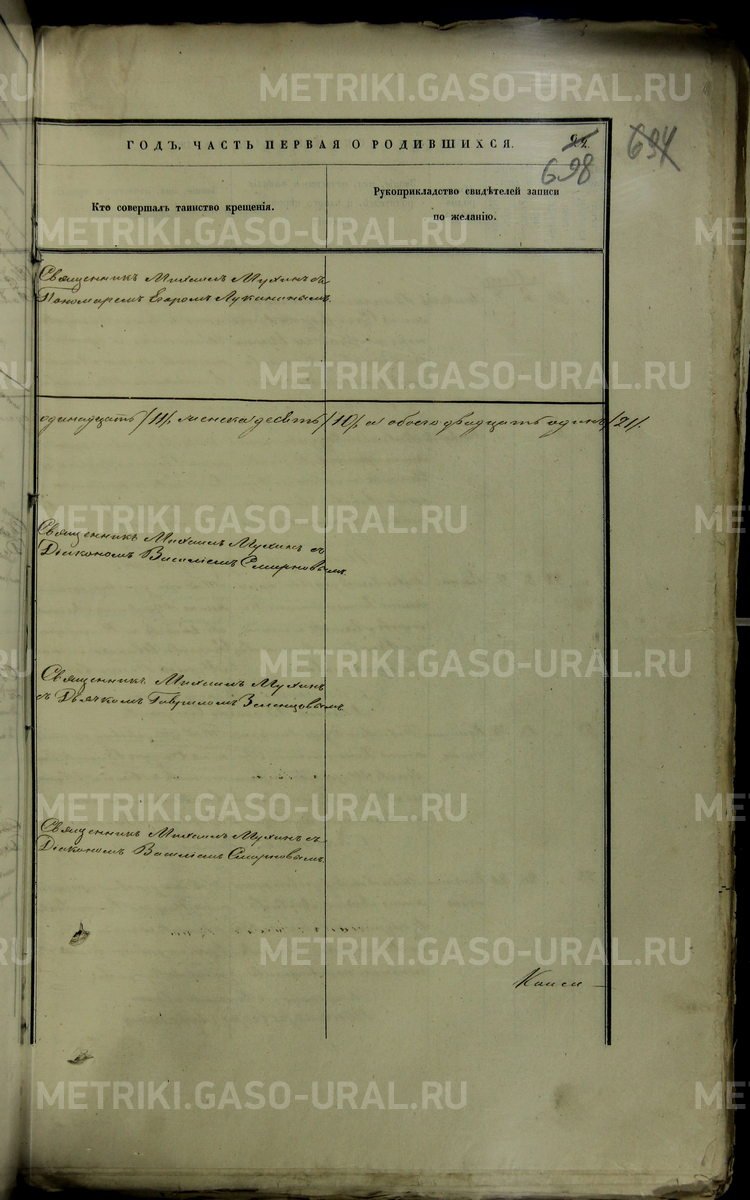 METRIKI.GASO-URAL.RU
ГОДЪ, ЧАСТЬ ПЕРВАЯ О РОДИВШИХСЯ.
698
694
Кто совершалъ таинство крещенія.
Рукоприкладство свидѣтелей записи
по желанію.
Священникъ Михаилъ Мухинъ съ
Пономаремъ Егоромъ Лукинымъ.
одинадцать /11/, женска десять /10/, а обоего двадцать одинъ /21/.
Священникъ Михаилъ Мухинъ съ
Діакономъ Василіемъ Смирновымъ.
Священникъ Михаилъ Мухинъ
съ Дьячкомъ Гавриломъ Зеленцовымъ.
Священникъ Михаилъ Мухинъ съ
Діакономъ Василіемъ Смирновымъ.